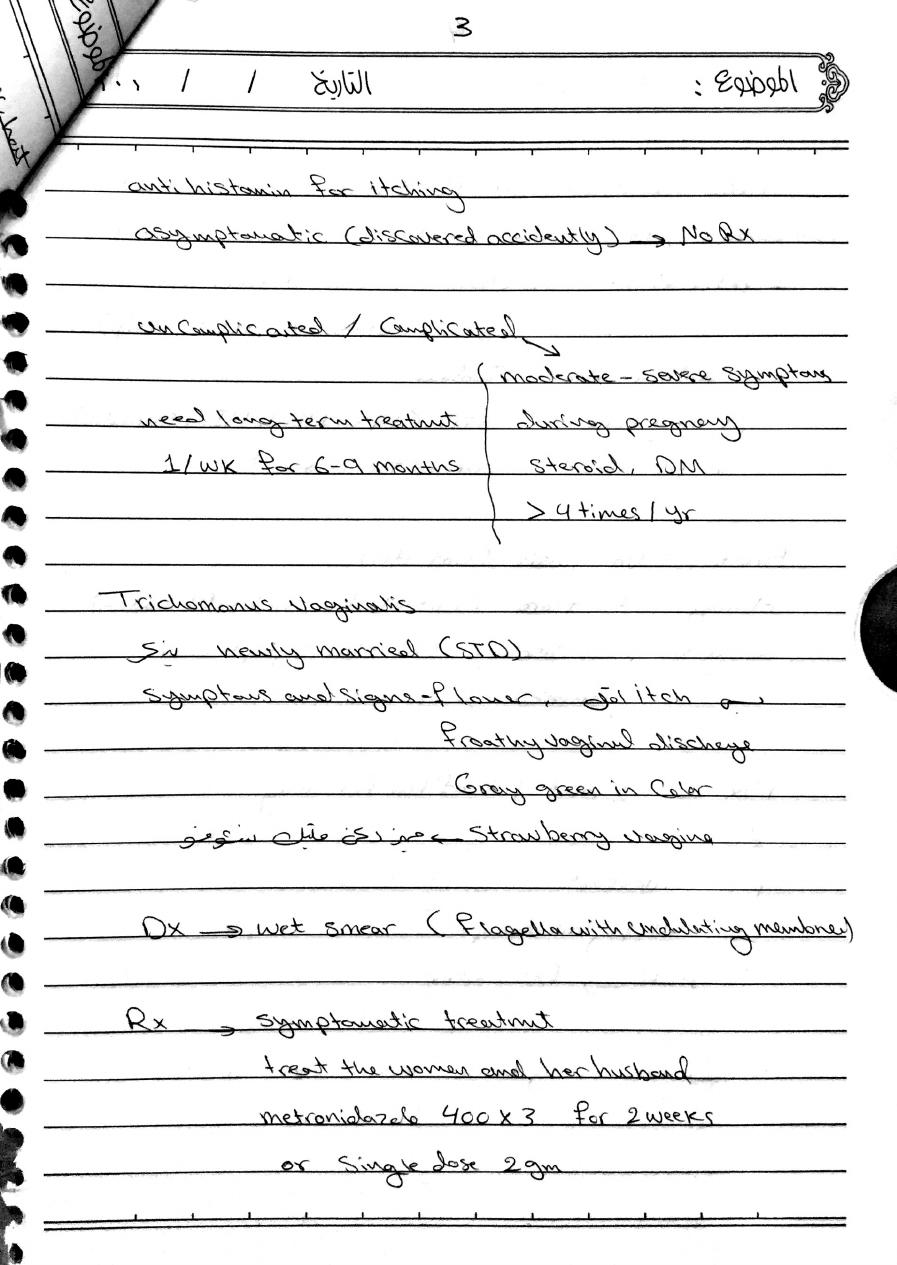 3
الموضوع : التاريخ / / ٢٠٠
الموضوع
anti histamin for itching
asymptomatic (discovered accidently) → No Rx
uncomplicated / Complicated
moderate - severe symptoms
need long term treatmut during pregnency
1/wk for 6-9 months steroid, DM
> 4 times / yr
Trichomonus vaginalis
newly married (STD)
symptoms and signs - itch
froathy vaginal discharge
Gray green in Color
Strawberry vagina
Dx → wet smear (flagella with undulating membrane)
Rx → symptomatic treatmut
treat the women and her husband
metronidazole 400 x 3 for 2 weeks
or single dose 2 gm